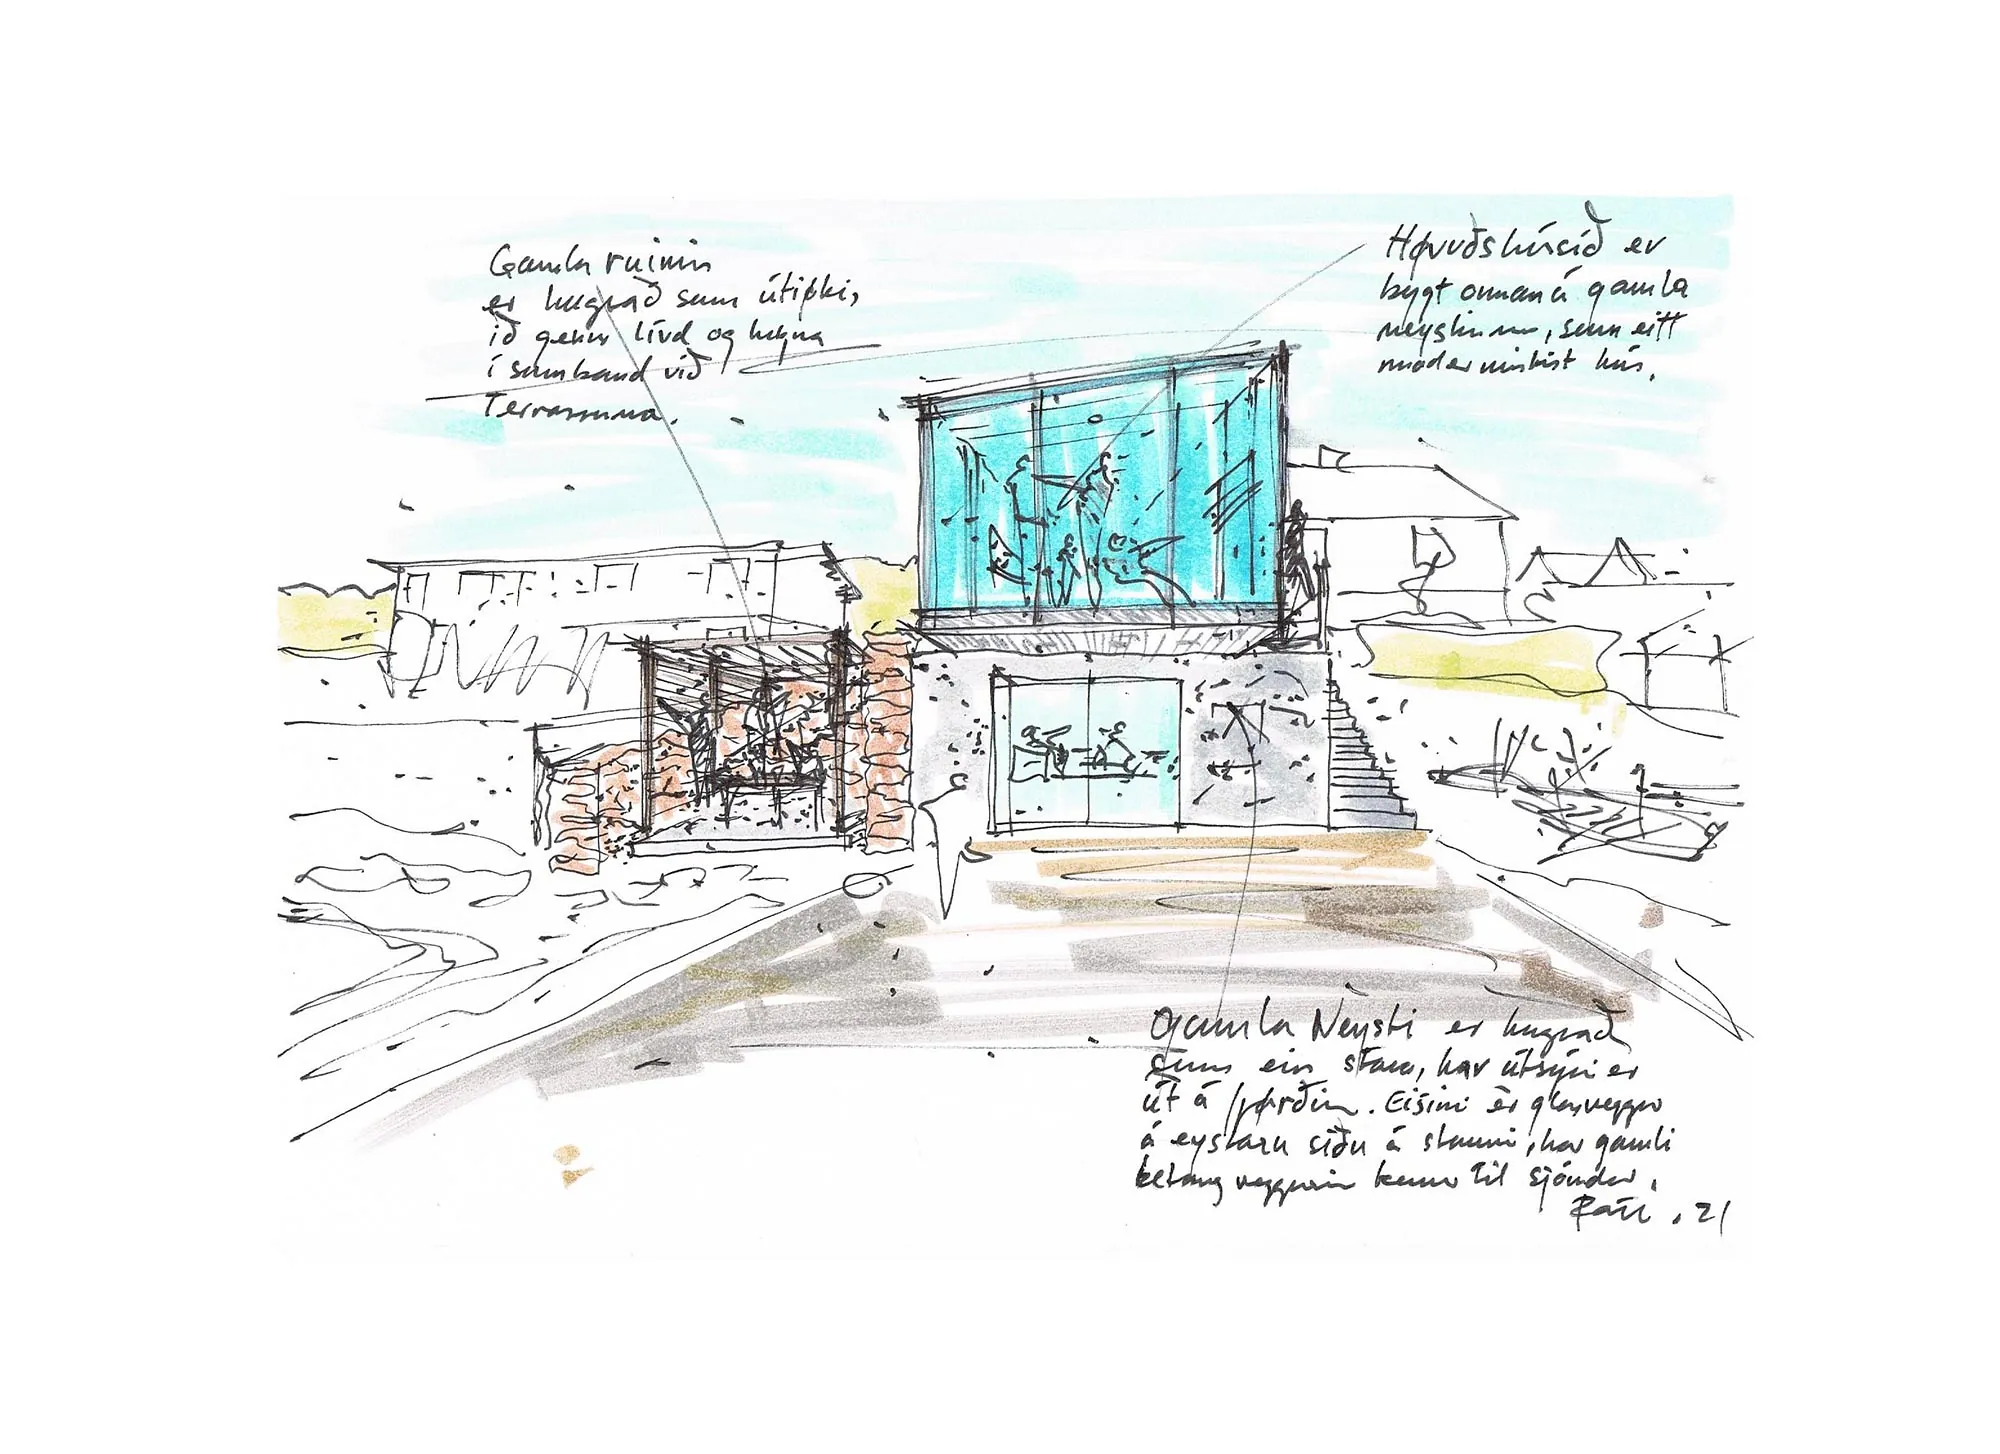 Gamla ruinin
er hugsað sum útipki,
ið gevur lívd og hugna
í samband við
Terrassuna.
Høvuðshúsið er
bygt omaná gamla
neystinum, sum eitt
modernistist hús.
Gamla Neysti er hugsað
sum ein stova, har útsýni er
út á fjørðin. Eisini er glasveggur
á eystaru síðu á stovuni, har gamli
betong veggurin kemur til sjóndar.
Páll . 21